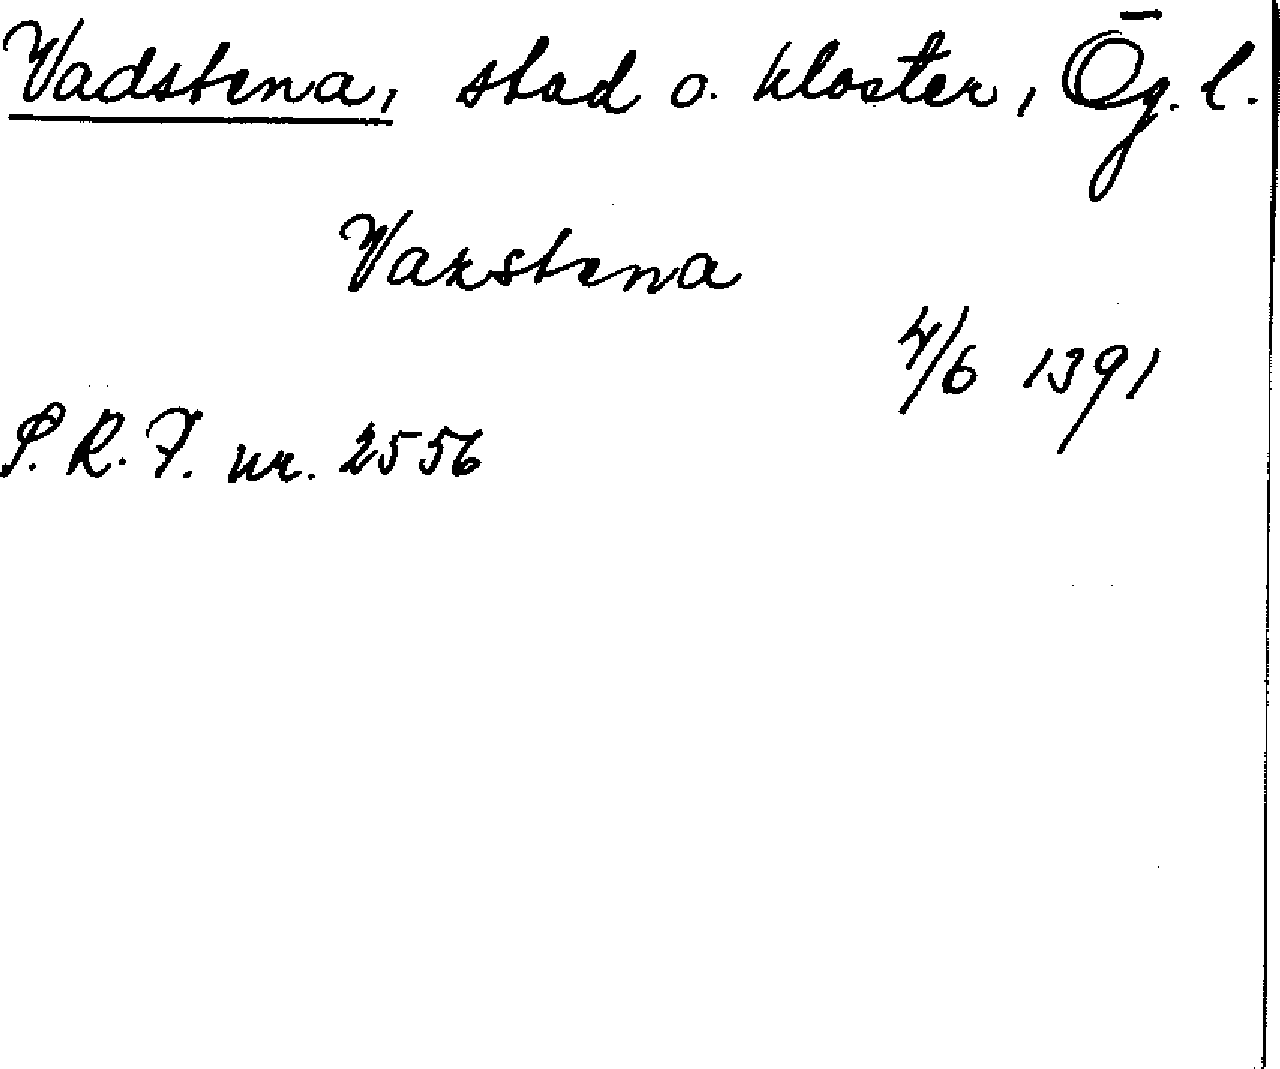 Vadstena, stad o. kloster, Ög. l.
Vazstena
4/6 1391
S. R. P. nr. 2556